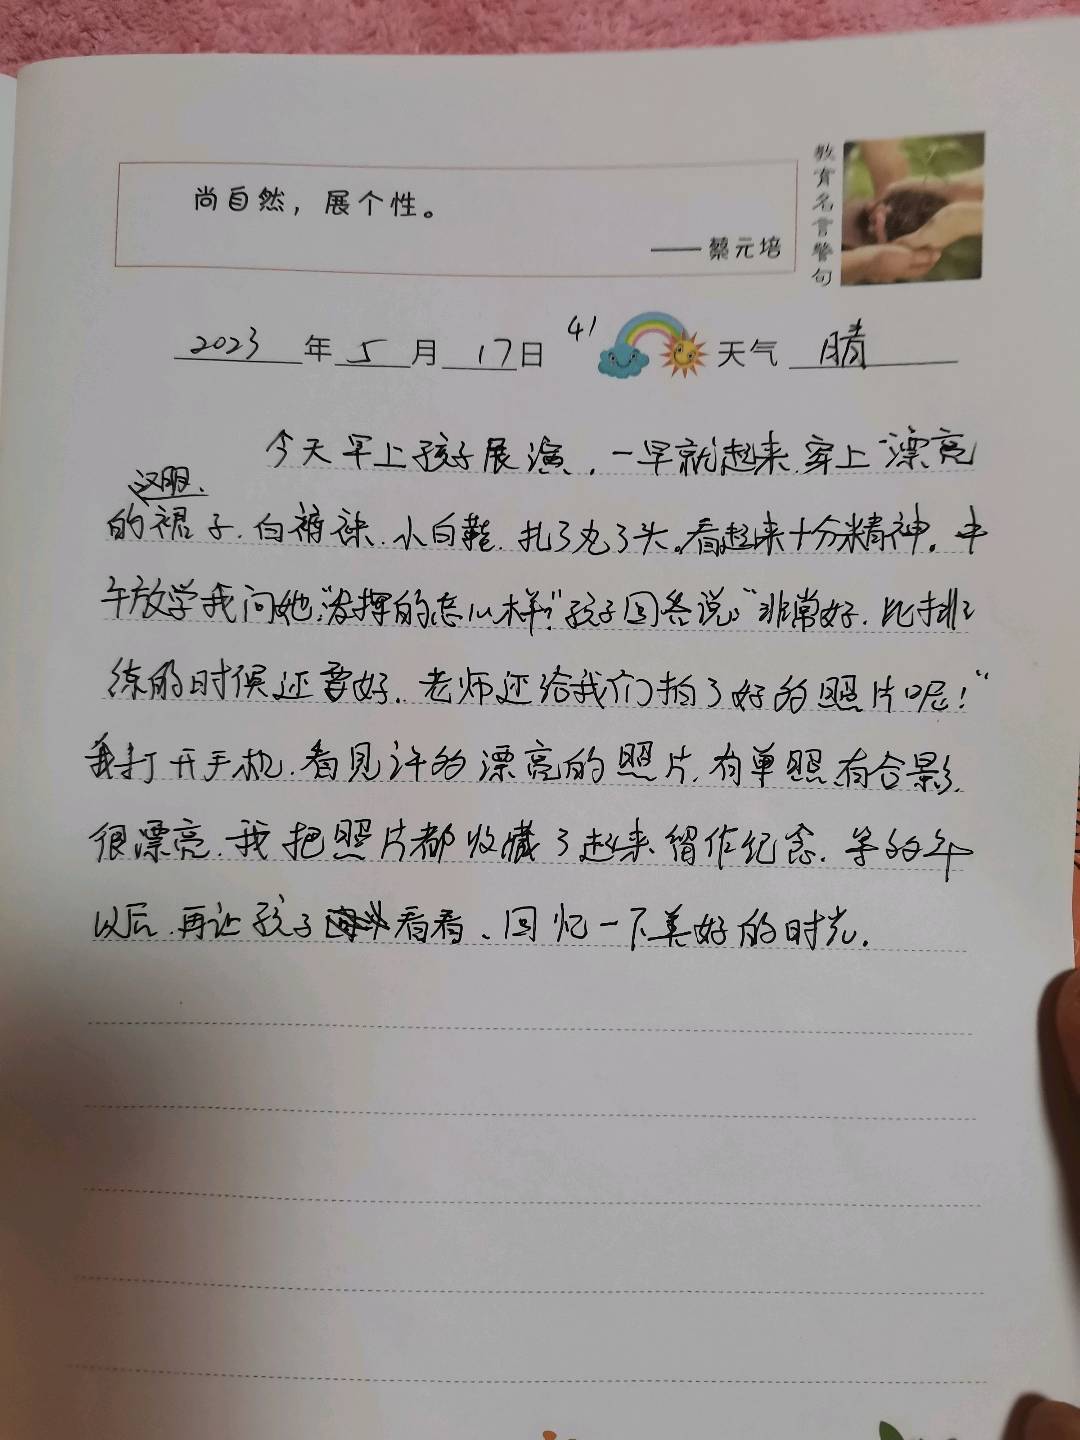 尚自然，展个性。
——蔡元培
教育名言警句
2023年5月17日 41 天气 晴
今天早上孩子展演，一早就起来，穿上漂亮
汉服、
的裙子，白裤袜，小白鞋，扎了丸子头。看起来十分精神。中
午放学我问她：“发挥的怎么样？”孩子回答说：“非常好，比排
练的时候还要好，老师还给我们拍了好的照片呢！”
我打开手机，看见许的漂亮的照片，有单照有合影，
很漂亮，我把照片都收藏了起来，留作纪念，等的年
以后，再让孩子看看、回忆一下美好的时光。